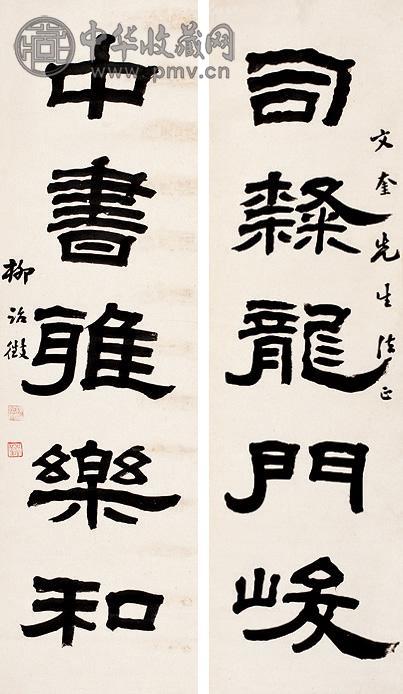 中华收藏网
www.pmv.cn
文奎先生法正
司隸龍門峻
中書雅樂和
柳詒徵